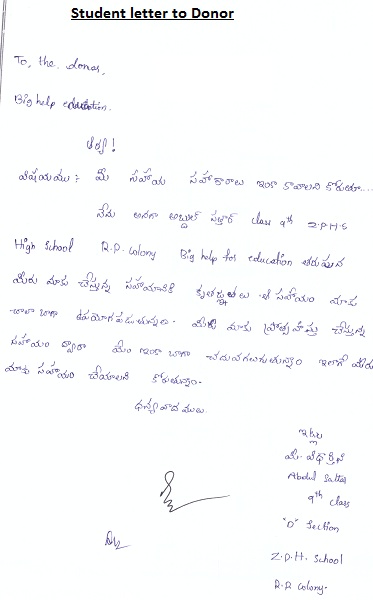 Student letter to Donor
To, the. donor,
Big help education.
ఆర్య!
విషయము :- మీ సహాయ సహకారాలు ఇంకా కావాలని కోరుతూ....
నేను అనగా అబ్దుల్ సత్తార్ class 9th Z.P.H.S
High School R.R. Colony Big help for education తరుపున
మీరు మాకు చేస్తున్న సహాయానికి కృతజ్ఞతలు ఆ సహాయం మాకు
చాలా బాగా ఉపయోగపడుతున్నది. మీరు మాకు ప్రోత్సహిస్తు చేస్తున్న
సహాయం ద్వారా మేం ఇంకా బాగా చదువగలుగుతున్నాం ఇలాగే మీరు
మాకు సహాయం చేయాలని కోరుతున్నాం.
ధన్యవాదములు.
ఇట్లు
మీ. విద్యార్థి
Abdul Sattar
9th class
"D" Section
Z.P.H. School
R.R Colony.